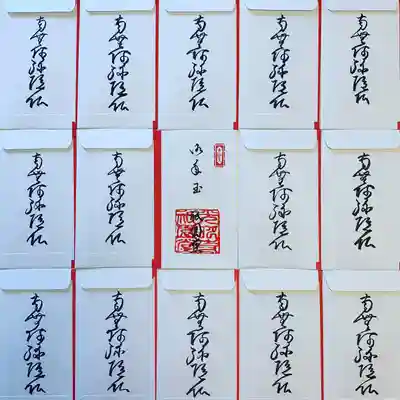 南無阿弥陀仏
南無阿弥陀仏
南無阿弥陀仏
南無阿弥陀仏
南無阿弥陀仏
南無阿弥陀仏
南無阿弥陀仏
御年玉
南無阿弥陀仏
南無阿弥陀仏
南無阿弥陀仏
南無阿弥陀仏
南無阿弥陀仏
南無阿弥陀仏
南無阿弥陀仏